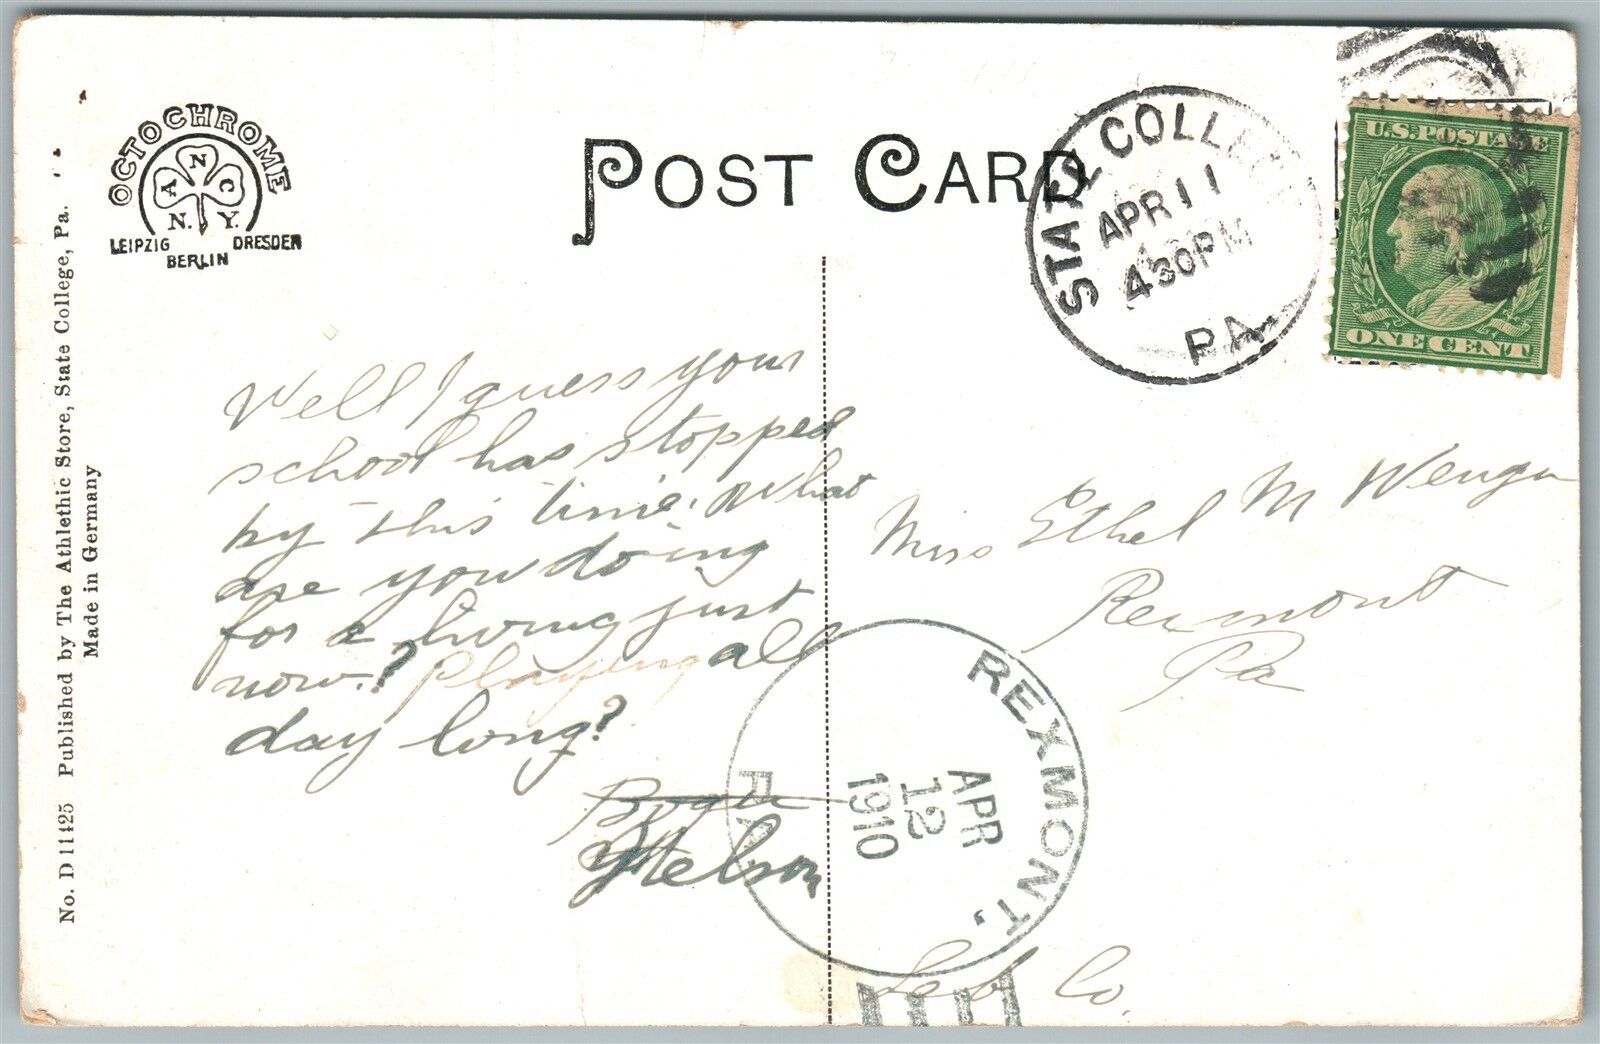 OCTOCHROME
A N C
N. Y.
LEIPZIG DRESDEN
BERLIN
POST CARD
STATE COLLEGE
APR 11
430PM
PA.
U.S. POSTAGE
ONE CENT
No. D 11425 Published by The Athlethic Store, State College, Pa.
Made in Germany
Well I guess your
school has stopped
by this time. What
are you doing
for a living just
now? Playing all
day long?
Miss Ethel M Wenger
Rexmont
Pa
Leb Co.
REXMONT,
APR
12
1910
PA.